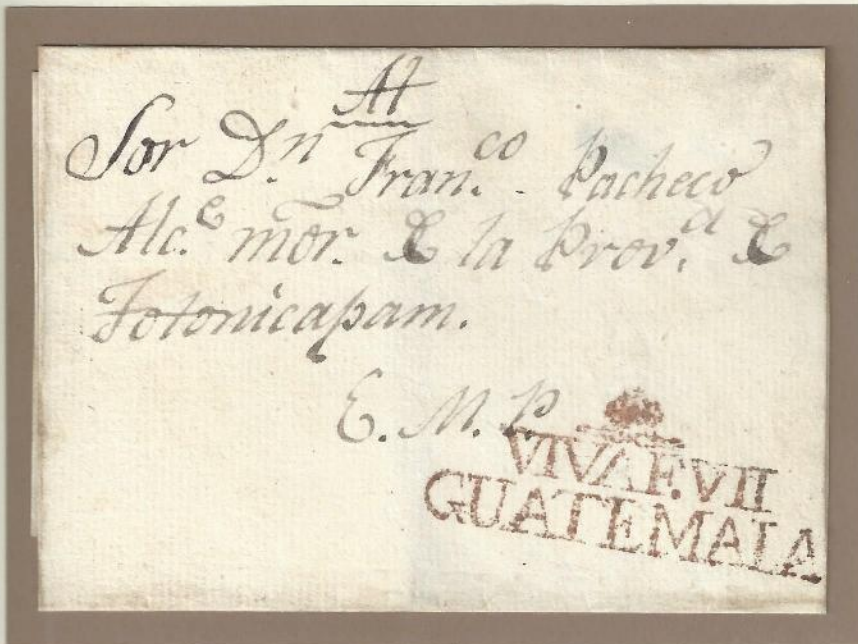 Al
Sor Dn. Franco. Pacheco
Alce. mor. de la Provd. de
Totonicapam.
E. M. P.
VIVA F. VII
GUATEMALA